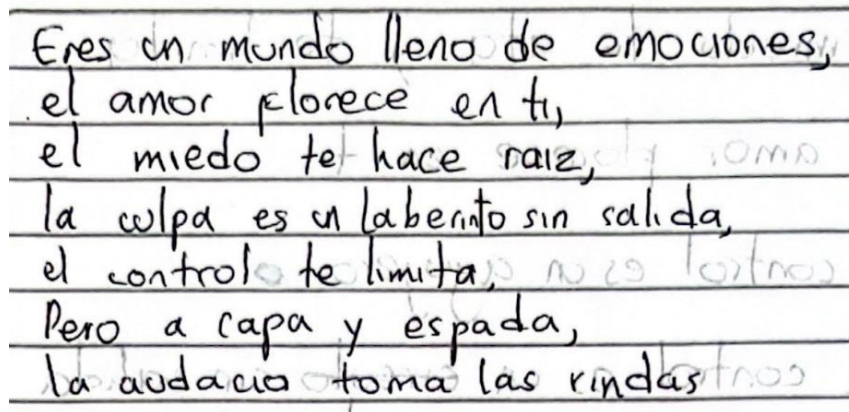 Eres un mundo lleno de emociones,
el amor florece en ti,
el miedo te hace raiz,
la culpa es un laberinto sin salida,
el control te limita,
Pero a capa y espada,
la audacia toma las rindas